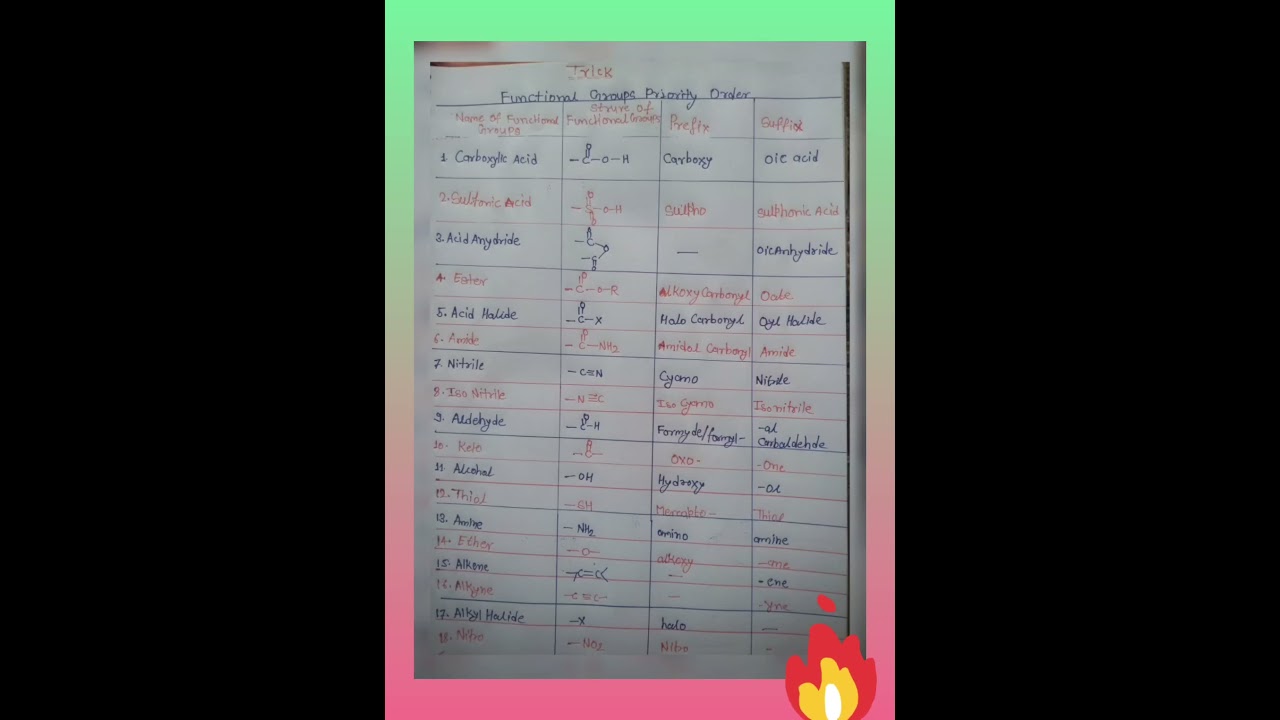 Trick
Functional Groups Priority Order
Name of Functional Groups Strure of Functional Groups Prefix Suffix
1. Carboxylic Acid –C(=O)–O–H Carboxy oic acid
2. Sulfonic Acid O–H Sulpho Sulphonic Acid
3. Acid Anydride — oic Anhydride
4. Ester –C(=O)–O–R Alkoxy Carbonyl Oate
5. Acid Halide –C(=O)–X Halo Carbonyl Oyl Halide
6. Amide –C(=O)–NH2 Carbonyl Amide
7. Nitrile –C≡N Cyano Nitrile
8. Iso Nitrile –N≡C Iso Cyano Isonitrile
9. Aldehyde –C(=O)–H Formyde/formyl– –al
10. Keto –C(=O)– Oxo– –One
11. Alcohol –OH Hydroxy –ol
12. Thiol –SH Thiol
13. Amine –NH2 amino amine
14. Ether –O– alkoxy
15. >C=C< — –ene
16. Alkyne –C≡C– — –yne
17. Alkyl Halide –X halo —
18. Nitro –NO2 Nitro –